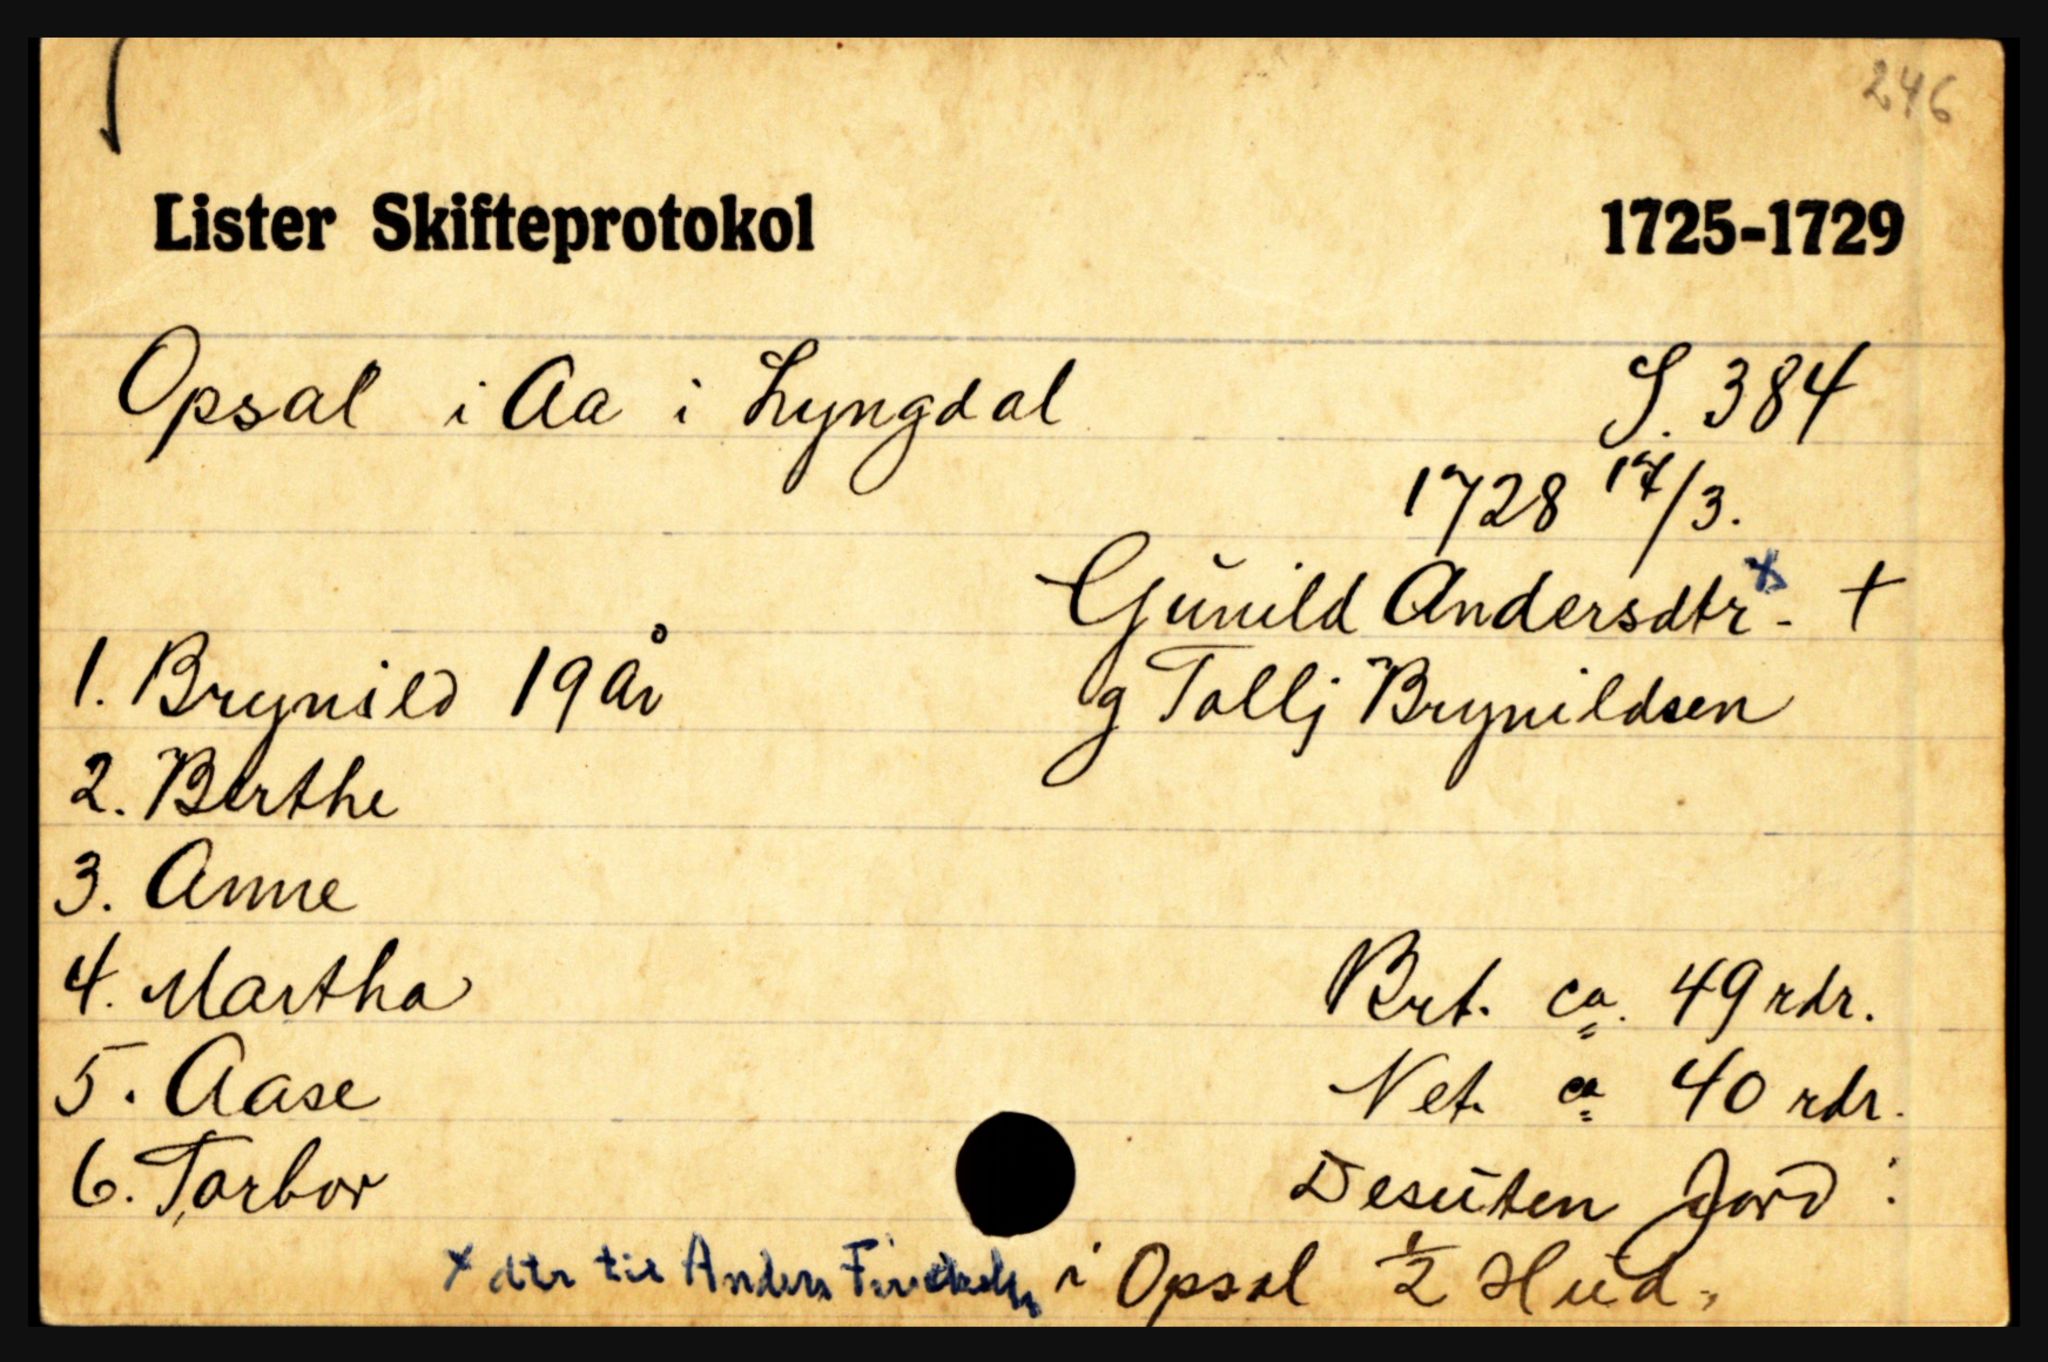 246
Lister Skifteprotokol 1725-1729
Opsal i Aa i Lyngdal S. 384
1728 17/3.
Gunild Andersdtr x - †
g Tallj Brynildsen
1. Brynild 19 år
2. Berthe
3. Anne
4. Martha
5. Aase
6. Tarbor
Brt. ca. 49 rdr.
Net. ca 40 rdr.
Desuten Jord :
i Opsal 1/2 Hud.
x dtr til Anders